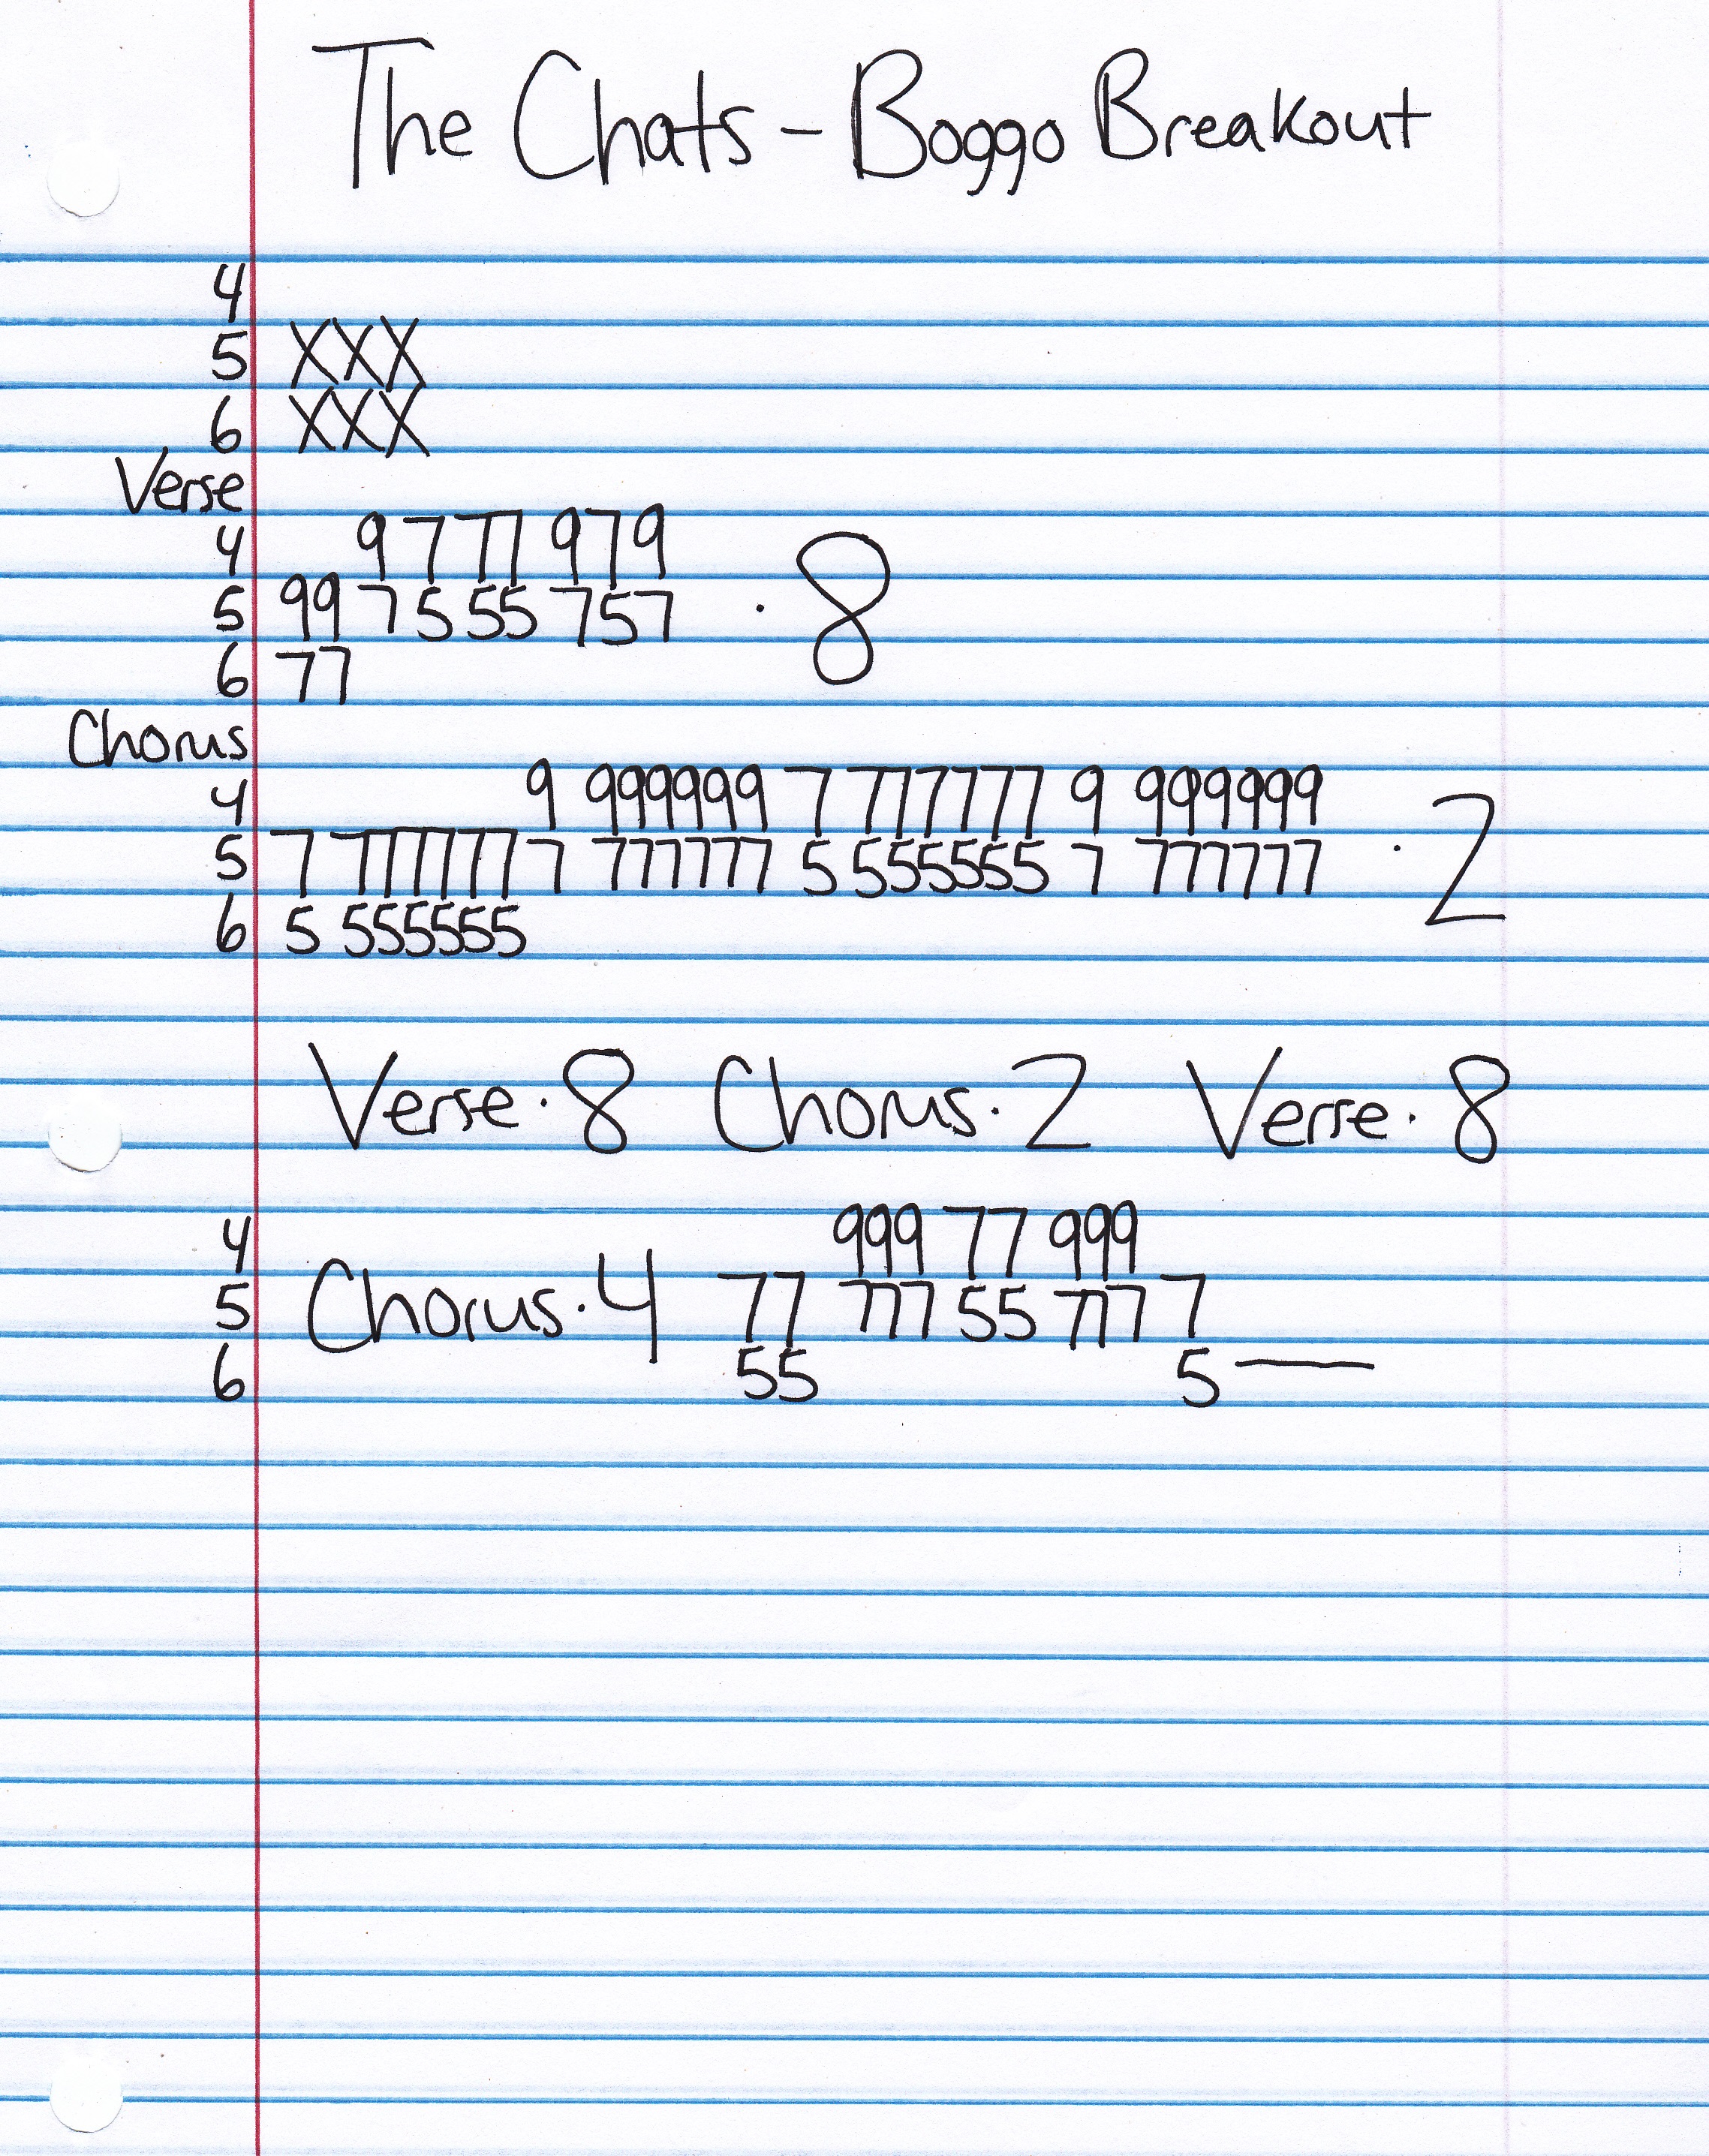 The Chats - Boggo Breakout
4
5 XXX
6 XXX
Verse
4 9 7 77 979
5 99 7 5 55 757 · 8
6 77
Chorus
4 9 999999 7 777777 9 999999
5 7 777777 7 777777 5 555555 7 777777 · 2
6 5 555555
Verse · 8 Chorus · 2 Verse · 8
4 999 77 999
5 Chorus · 4 77 777 55 777 7
6 55 5 —